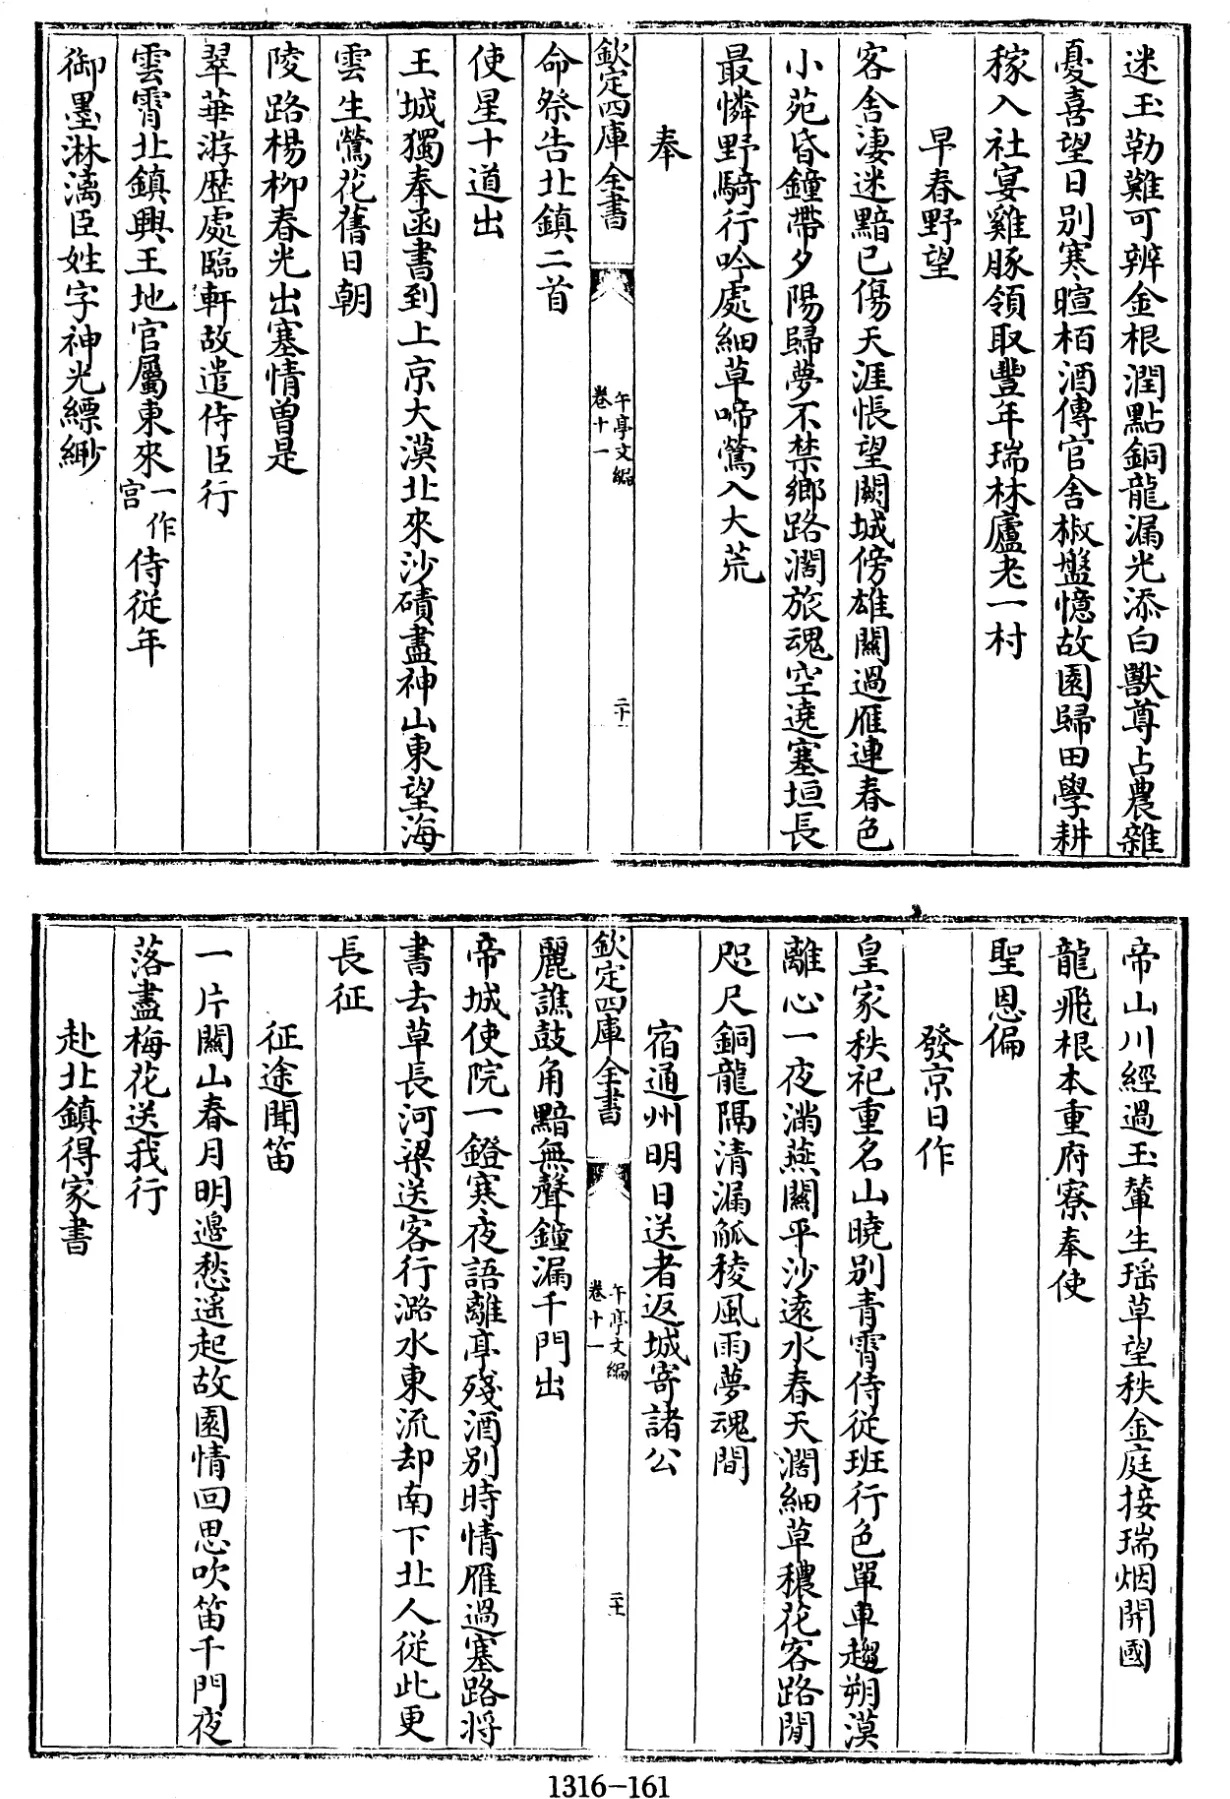 迷玉勒難可辨金根潤點銅龍漏光添白獸尊占農雜
憂喜望日別寒暄栢酒傳官舍椒盤憶故園歸田學耕
稼入社宴雞豚領取豐年瑞林廬老一村
早春野望
客舍淒迷黯已傷天涯悵望闕城傍雄關過雁連春色
小苑昏鐘帶夕陽歸夢不禁鄉路濶旅魂空遶塞垣長
最憐野騎行吟處細草啼鶯入大荒
奉
欽定四庫全書
午亭文編
卷十一
二十
命祭告北鎮二首
使星十道出
王城獨奉函書到上京大漠北來沙磧盡神山東望海
雲生鶯花舊日朝
陵路楊柳春光出塞情曾是
翠華游歷處臨軒故遣侍臣行
雲霄北鎮興王地官屬東來一作宫侍從年
御墨淋漓臣姓字神光縹緲
帝山川經過玉輦生瑶草望秩金庭接瑞烟開國
龍飛根本重府寮奉使
聖恩偏
發京日作
皇家秩祀重名山曉別青霄侍從班行色單車趨朔漠
離心一夜滿燕關平沙遠水春天濶細草穠花客路閒
咫尺銅龍隔清漏觚稜風雨夢魂間
宿通州明日送者返城寄諸公
欽定四庫全書
午亭文編
卷十一
二十一
麗譙鼓角黯無聲鐘漏千門出
帝城使院一鐙寒夜語離亭殘酒別時情雁過塞路將
書去草長河梁送客行潞水東流却南下北人從此更
長征
征途聞笛
一片關山春月明邊愁遥起故園情回思吹笛千門夜
落盡梅花送我行
赴北鎮得家書
1316-161